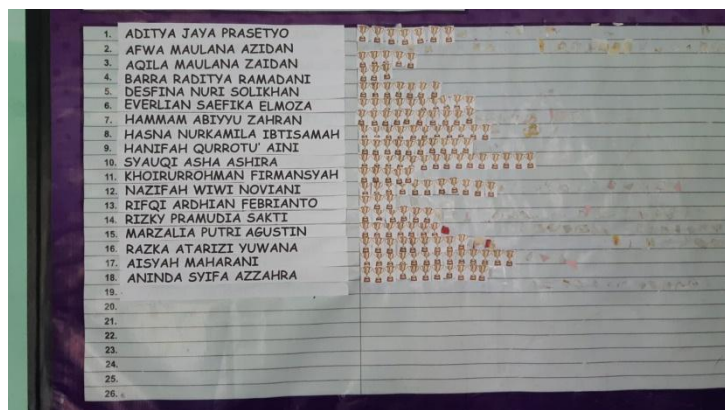 1. ADITYA JAYA PRASETYO
2. AFWA MAULANA AZIDAN
3. AQILA MAULANA ZAIDAN
4. BARRA RADITYA RAMADANI
5. DESFINA NURI SOLIKHAN
6. EVERLIAN SAEFIKA ELMOZA
7. HAMMAM ABIYYU ZAHRAN
8. HASNA NURKAMILA IBTISAMAH
9. HANIFAH QURROTU' AINI
10. SYAUQI ASHA ASHIRA
11. KHOIRURROHMAN FIRMANSYAH
12. NAZIFAH WIWI NOVIANI
13. RIFQI ARDHIAN FEBRIANTO
14. RIZKY PRAMUDIA SAKTI
15. MARZALIA PUTRI AGUSTIN
16. RAZKA ATARIZI YUWANA
17. AISYAH MAHARANI
18. ANINDA SYIFA AZZAHRA
19.
20.
21.
22.
23.
24.
25.
26.